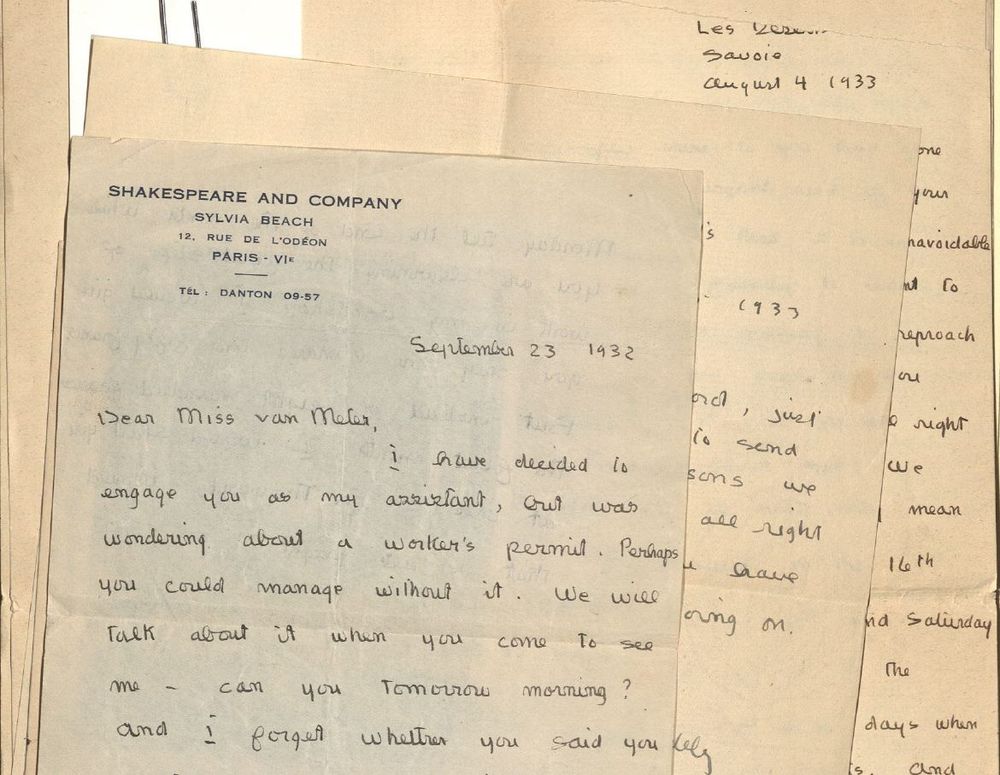 SHAKESPEARE AND COMPANY
SYLVIA BEACH
12, RUE DE L'ODÉON
PARIS - VIE
TÉL : DANTON 09-57
September 23 1932
Dear Miss van Meter,
I have decided to
engage you as my assistant, but was
wondering about a worker's permit. Perhaps
you could manage without it. We will
talk about it when you come to see
me - can you tomorrow morning?
and I forget whether you said you
's
1933
ord, just
to send
sons we
all right
u have
oing on.
Les
Savoie
August 4 1933
one
your
navoidable
nt to
reproach
ou
e right
We
mean
16th
nd Saturday
The
days when
s. and